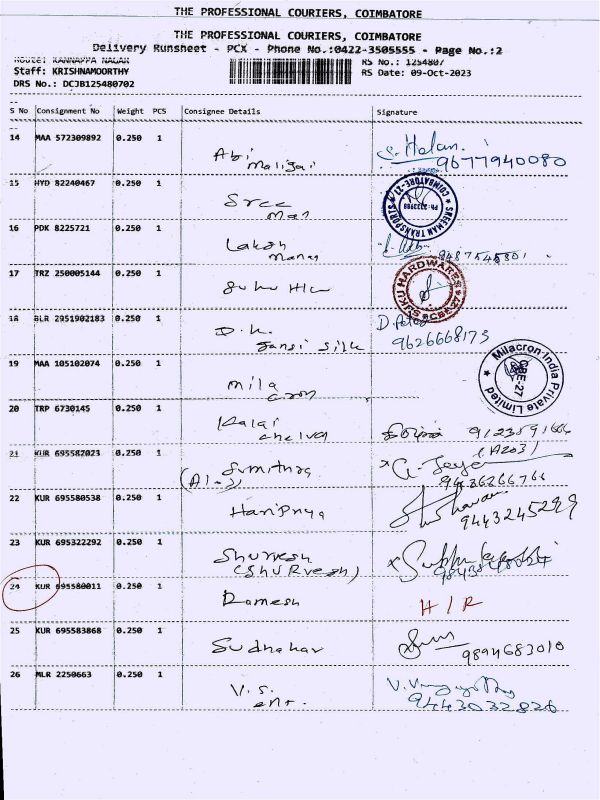 THE PROFESSIONAL COURIERS, COIMBATORE
THE PROFESSIONAL COURIERS, COIMBATORE
Delivery Runsheet - PCX - Phone No.:0422-3505555 - Page No.:2
Route: KANNAPPA NAGAR RS No.: 1254807
Staff: KRISHNAMOORTHY RS Date: 09-Oct-2023
DRS No.: DCJB125480702
S No Consignment No Weight PCS Consignee Details Signature
14 MAA 572309892 0.250 1 Abi Maligai S. Helan. 9677940080
15 HYD 82240467 0.250 1 Sree Man SREEMAN TRANSPORTS COIMBATORE-27
16 PDK 8225721 0.250 1 Laksh manas
17 TRZ 250005144 0.250 1 Suku H/w SUKU HARDWARES CBE-27
18 BLR 2951902183 0.250 1 D.K. Jansi Silk 9626668173
19 MAA 105102074 0.250 1 Mila cron Milacron India Private Limited CBE-27
20 TRP 6730145 0.250 1 Kalai chelvan
21 KUR 695582023 0.250 1 Sumithra (A1-3) G. Jeya (A203) 9486266766
22 KUR 695580538 0.250 1 Haripriya 9443245299
23 KUR 695322292 0.250 1 Shurvesh (ShURvesh)
24 KUR 695580011 0.250 1 Ramesh H/R
25 KUR 695583868 0.250 1 Sudhakar 9894683010
26 MLR 2250663 0.250 1 V.S. ent. 9443032826